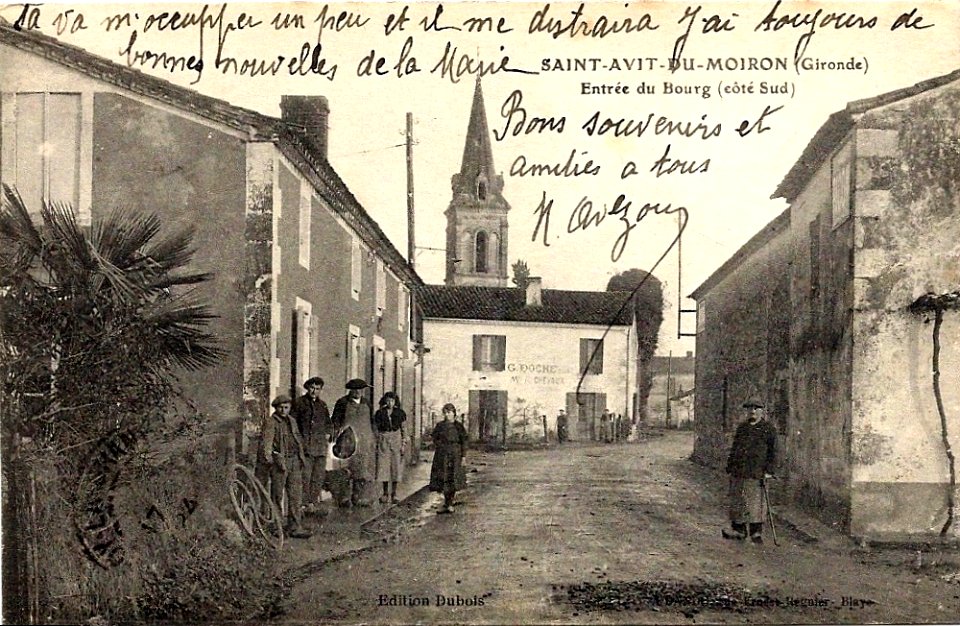 Ça va m'occuper un peu et il me distraira J'ai toujours de
bonnes nouvelles de la Marie
SAINT-AVIT-DU-MOIRON (Gironde)
Entrée du Bourg (côté Sud)
Bons souvenirs et
amitiés a tous
G. DOCHE
Edition Dubois
Regnier - Blaye